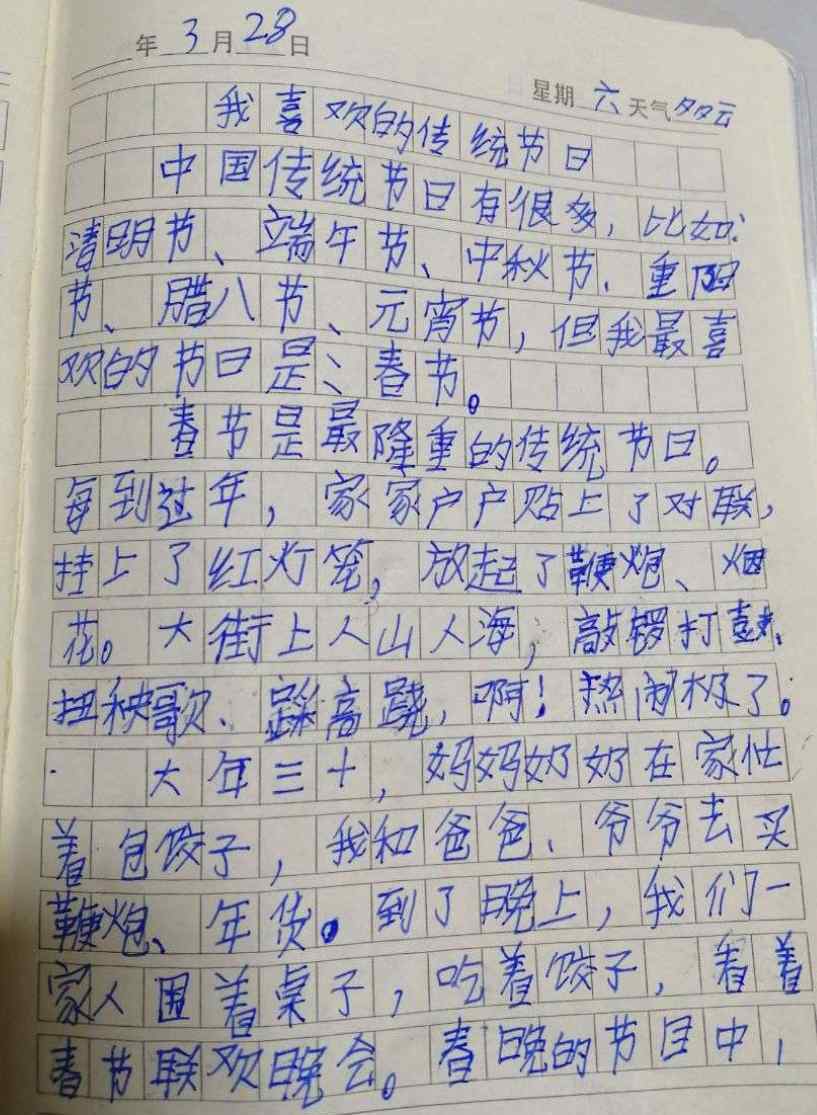 年 3 月 28 日
星期 六 天气 多云
我喜欢的传统节日
中国传统节日有很多，比如：
清明节、端午节、中秋节、重阳
节、腊八节、元宵节，但我最喜
欢的节日是：春节。
春节是最隆重的传统节日。
每到过年，家家户户贴上了对联，
挂上了红灯笼，放起了鞭炮、烟
花。大街上人山人海，敲锣打鼓、
扭秧歌、踩高跷，啊！热闹极了。
大年三十，妈妈奶奶在家忙
着包饺子，我和爸爸、爷爷去买
鞭炮、年货。到了晚上，我们一
家人围着桌子，吃着饺子，看着
春节联欢晚会。春晚的节目中，